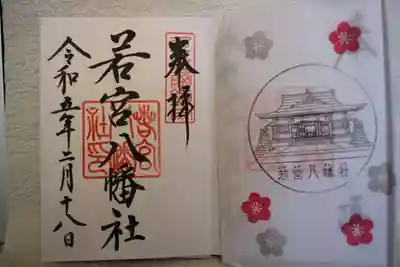 奉拝
若宮八幡社
令和五年二月十八日
若宮八幡社